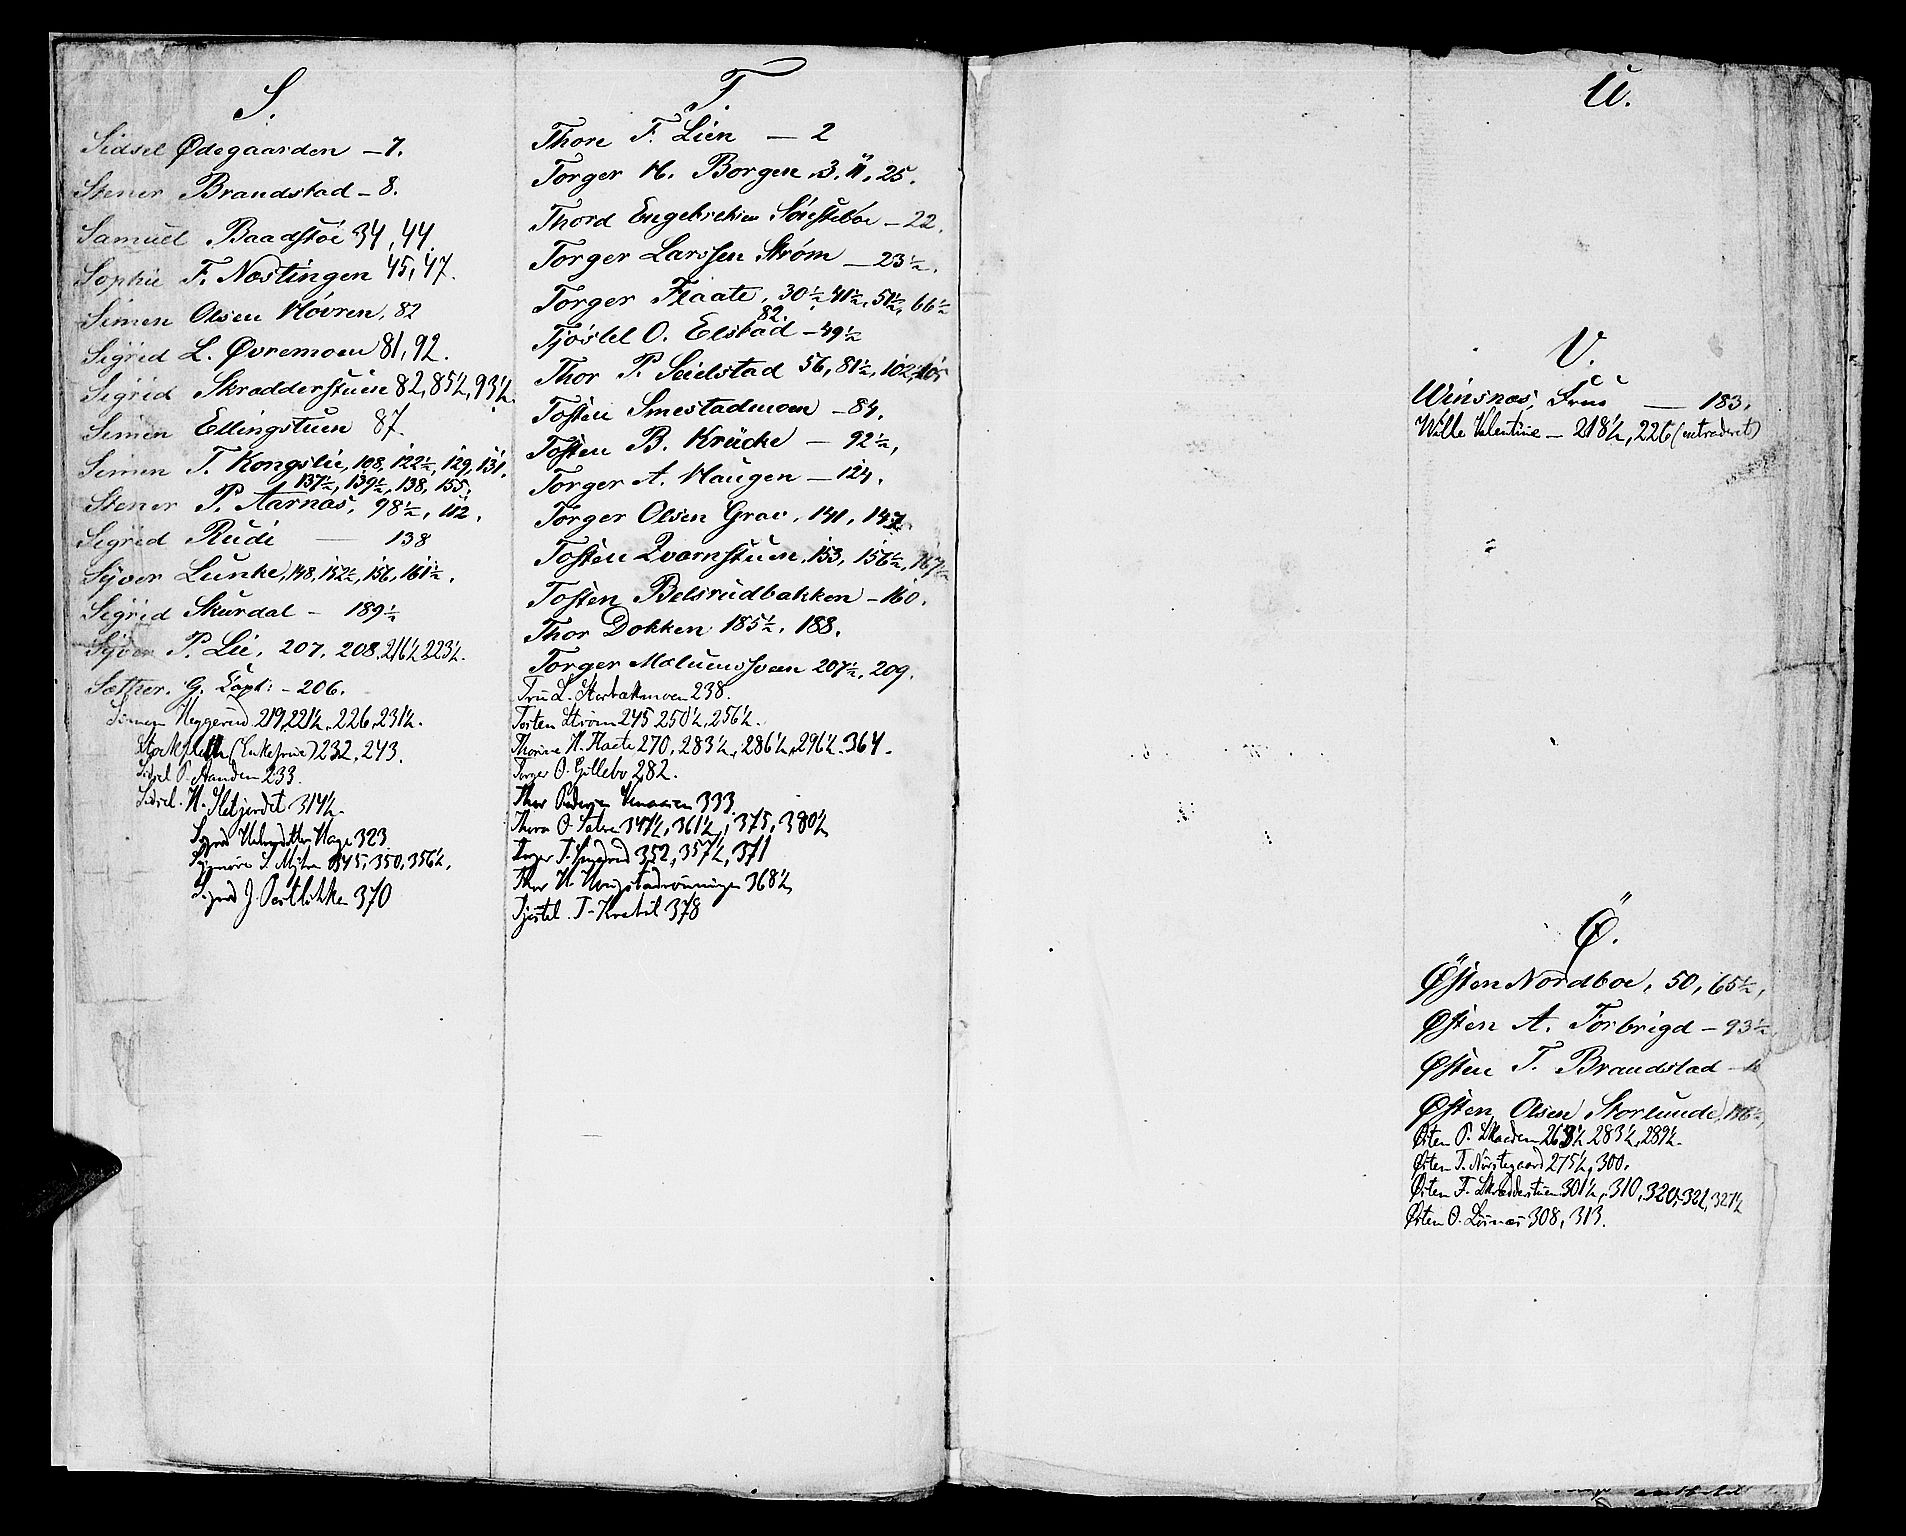 S.
Sidsel Ødegaarden - 7.
Stener Brandstad - 8.
Samuel Baadstøe 34, 44.
Sophie F. Næstingen 45, 47.
Simen Olsen Høvren, 82
Sigrid L. Øvremoen 81, 92.
Sigrid Skrædderstuen 82, 85½, 93½.
Simen Ellingstuen 87.
Simen T. Kongslie, 108, 122½, 129, 131.
137½, 139½, 138, 155,
Stener P. Aarnæs, 98½, 112.
Sigrid Rudi — 138
Syver Lunke, 148, 152½, 156, 161½.
Sigrid Skurdal - 189½
Syver P. Lie, 207, 208, 216½ 223½.
Sæther. G. Capt: - 206.
Simen Heggerud 219, 221½, 226, 231½.
Stockfleth (Enkefrue) 232, 243.
Sidsel P. Standen 233.
Sidsel. H. Sletjordet 314½.
Sigrid Hage 323.
S. Myhre 345, 350, 356½.
Sigrid J. 370
T.
Thore F. Lien — 2
Torger H. Borgen, 3, 11, 25.
Thord Engebretsen Sørstebøe - 22.
Torger Larssen Strøm — 23½.
Torger Flaate, 30½, 41½, 51½, 66½
82.
Tjøstel O. Elstad - 49½
Thor P. Seielstad 56, 81½, 102, 105
Tosten Smestadmoen - 84.
Tosten B. Krücke — 92½,
Torger A. Haugen — 124.
Torger Olsen Grav, 141, 147
Tosten Qvarnstuen, 153, 156½, 167½
Tosten Belsrudbakken - 160.
Thor Dokken 185½, 188.
Torger Mælumssveen 207½, 209.
Tru L. Storbakmoen 238.
Tosten Strøm 245 250½, 256½.
Thorine H. Flaate 270, 283½, 286½, 296½. 364.
Torger O. Gillebo 282.
Thor Pedersen 333.
Thora O. Sætre 347½, 361½, 375, 380½
Torger T. 352, 357½, 371
Thor H. Hougstadrønningen 368½,
Tjøstel. T. Krabel 378
U.
V.
Winsnæs, Frue — 183.
Wille Valentine - 218½, 226 (extraderet)
Ø.
Østen Nordboe, 50, 65½,
Østen A. Forbrigd - 93½
Østen T. Brandstad -
Østen Olsen Storlunde,
Østen P. Skaden 263½ 283½, 289½.
Østen T. Nørstegaard 275½, 300.
Østen F. Skrædderstuen 301½, 310, 320, 321, 327½
Østen O. Lisnæs 308, 313.